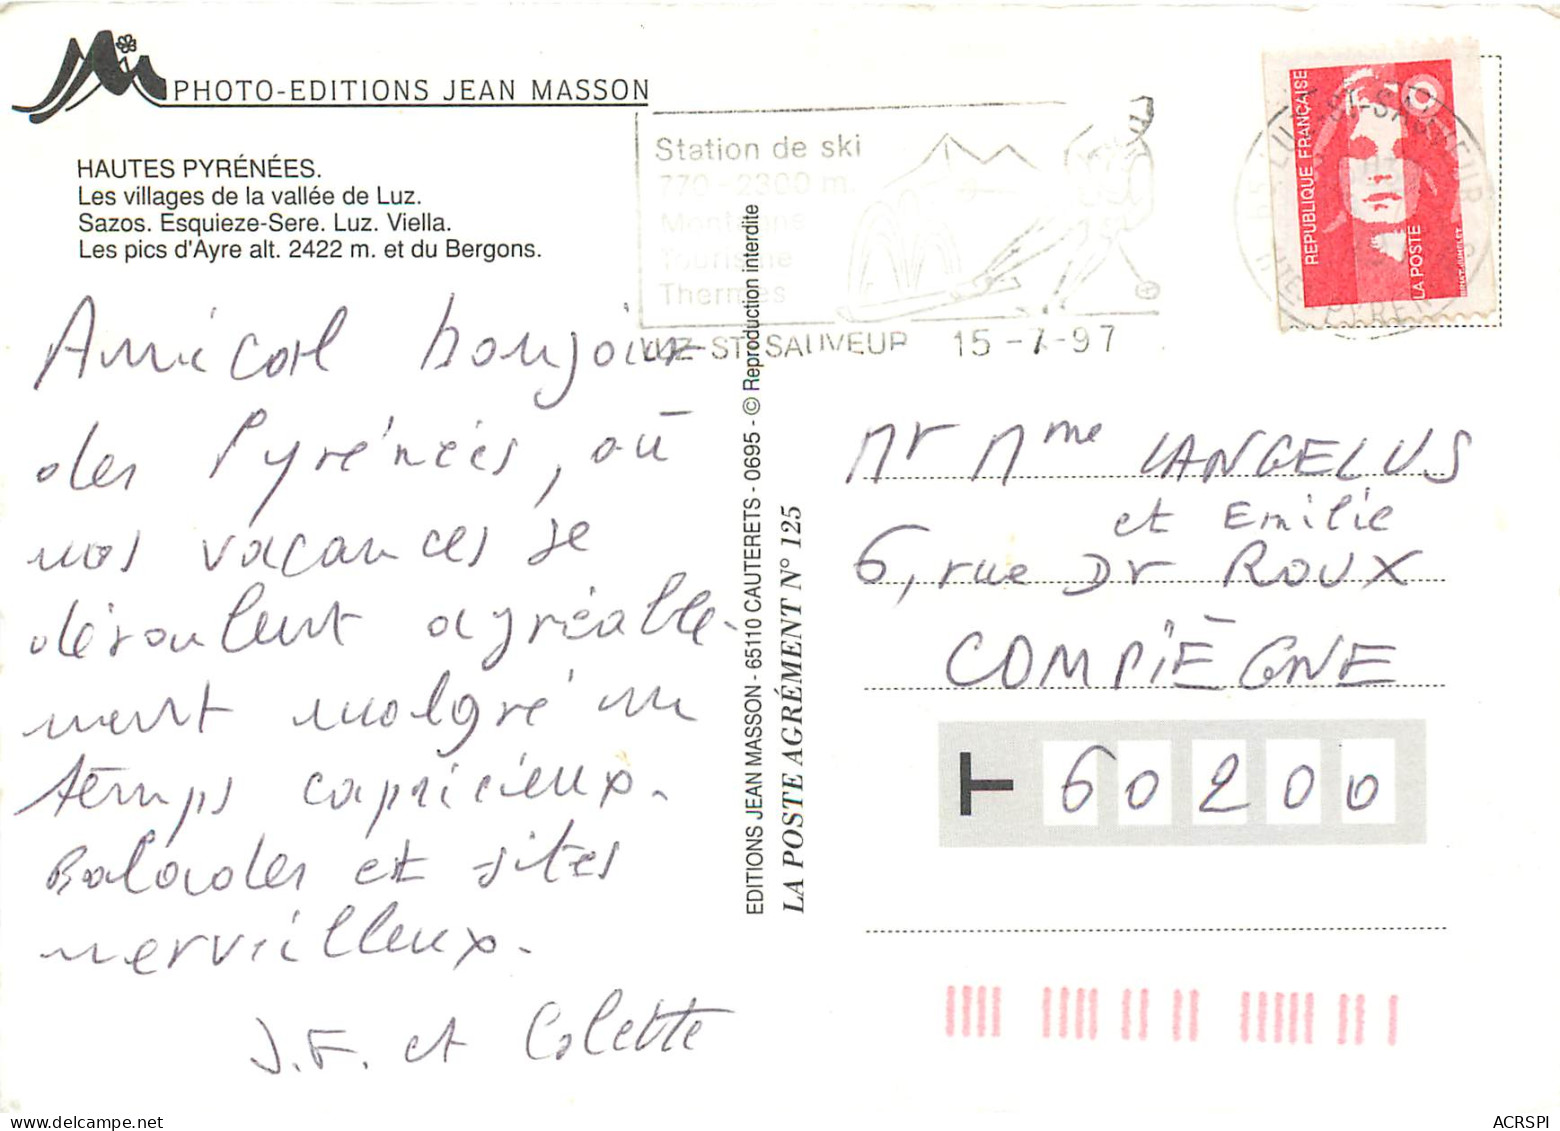 PHOTO-EDITIONS JEAN MASSON
HAUTES PYRÉNÉES.
Les villages de la vallée de Luz.
Sazos. Esquieze-Sere. Luz. Viella.
Les pics d'Ayre alt. 2422 m. et du Bergons.
Amical bonjour
des Pyrénées, où
nos vacances se
déroulent agréable-
ment malgré un
temps capricieux.
Balades et sites
merveilleux.
J.F. et Colette
Station de ski
770-2300 m.
Montagnes
Tourisme
Thermes
LUZ-ST-SAUVEUR 15-7-97
EDITIONS JEAN MASSON - 65110 CAUTERETS - 0695 - © Reproduction interdite
LA POSTE AGRÉMENT N° 125
REPUBLIQUE FRANÇAISE
LA POSTE
Mr Mme LANGELUS
et Emilie
6, rue Dr ROUX
COMPIÈGNE
T 60200
ACRSPI